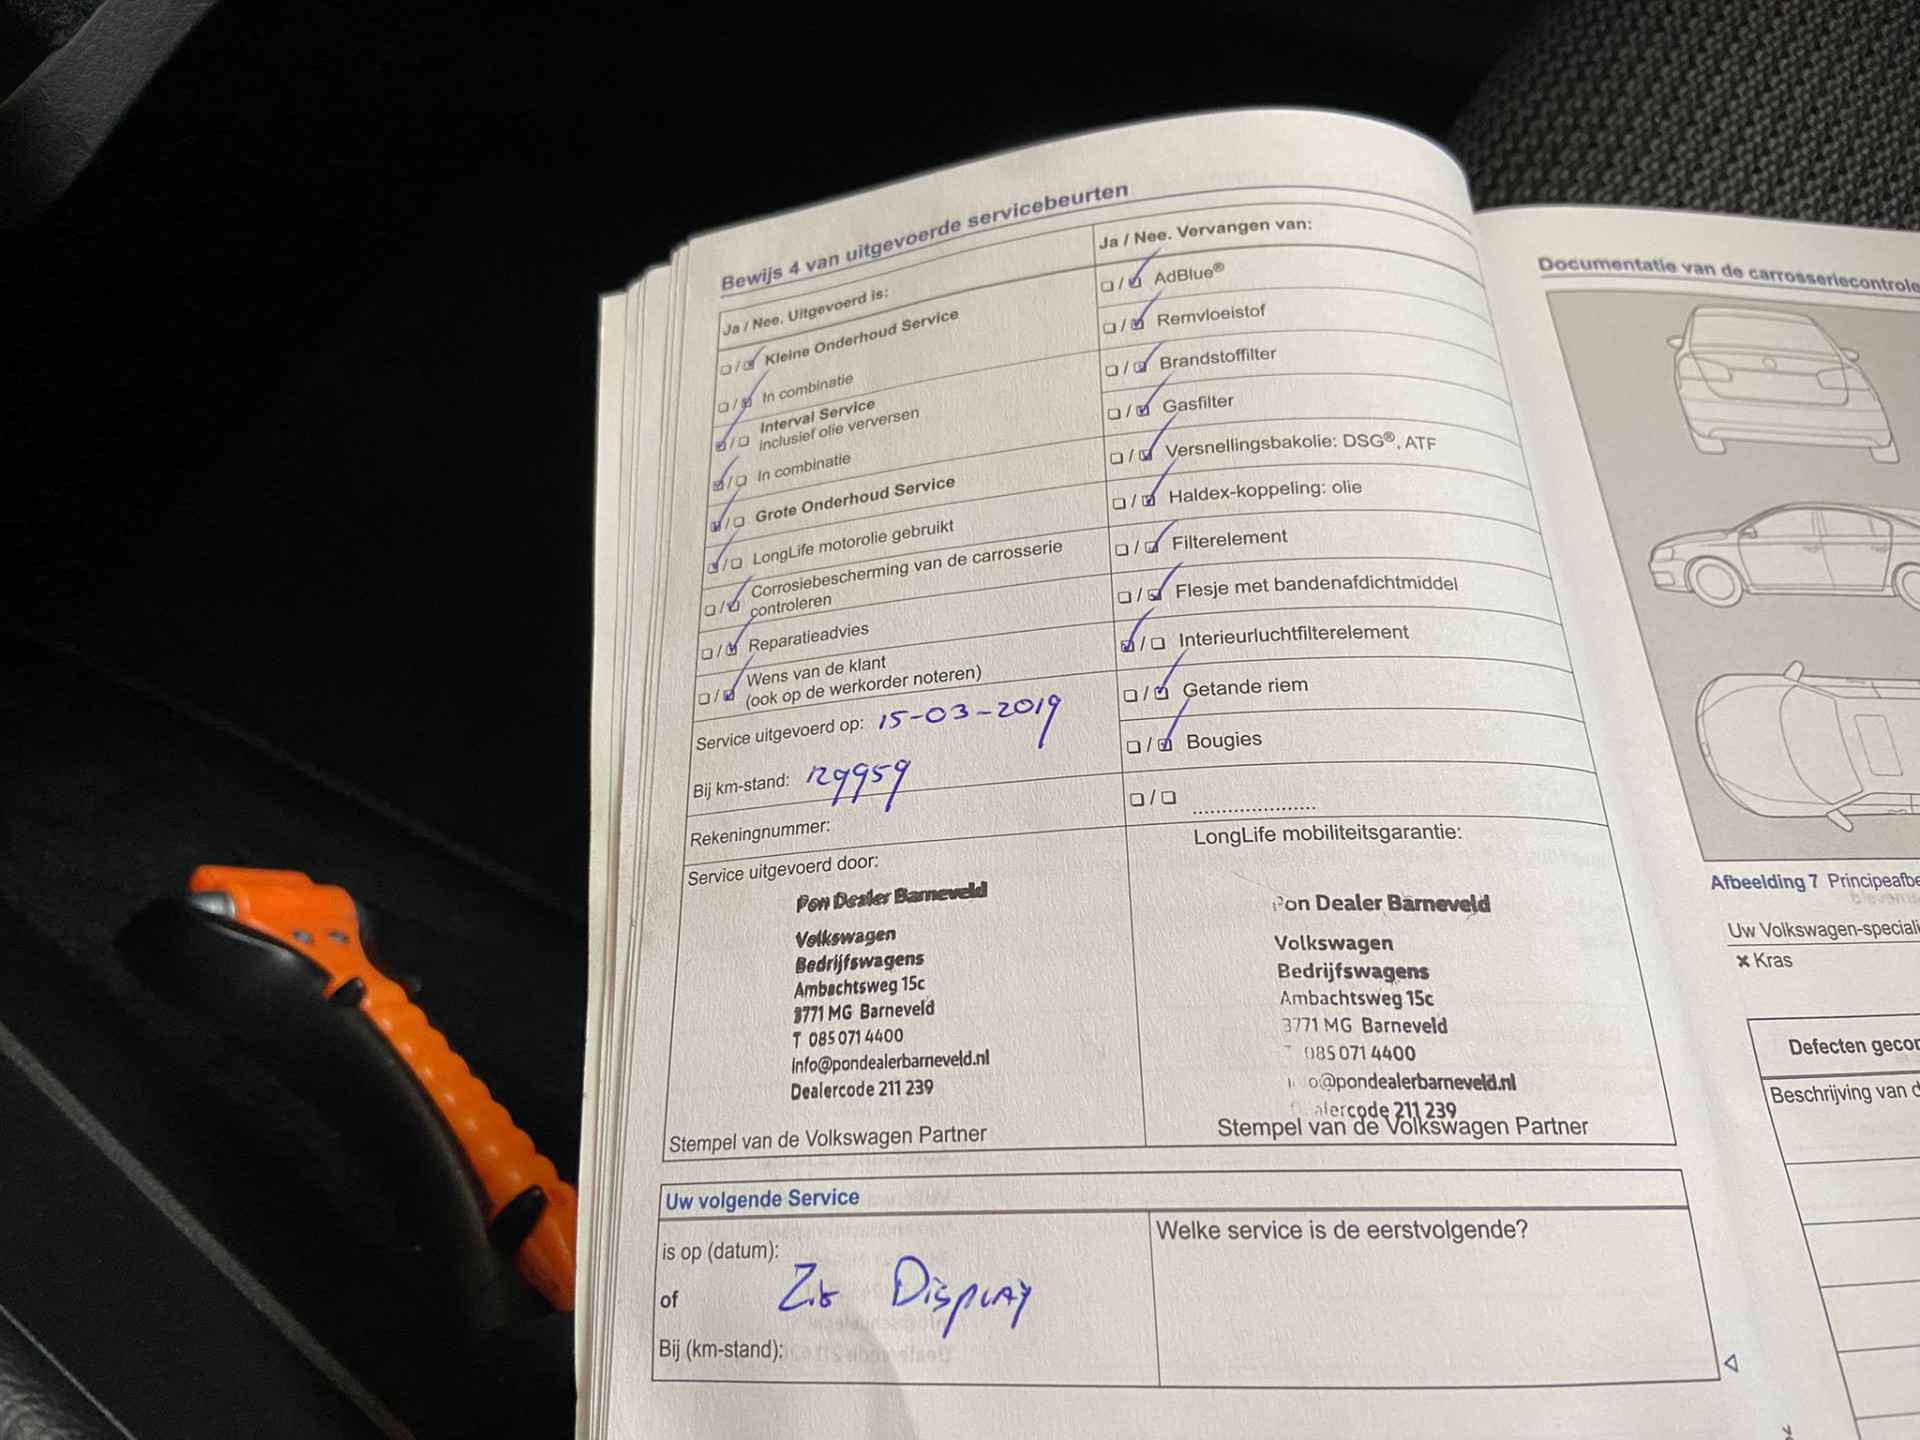 Bewijs 4 van uitgevoerde servicebeurten
Ja / Nee. Uitgevoerd is:
Kleine Onderhoud Service
In combinatie
Interval Service
inclusief olie verversen
In combinatie
Grote Onderhoud Service
LongLife motorolie gebruikt
Corrosiebescherming van de carrosserie
controleren
Reparatieadvies
Wens van de klant
(ook op de werkorder noteren)
Service uitgevoerd op: 15-03-2019
Bij km-stand: 129959
Rekeningnummer:
Service uitgevoerd door:
Pon Dealer Barneveld
Volkswagen
Bedrijfswagens
Ambachtsweg 15c
3771 MG Barneveld
T 085 071 4400
info@pondealerbarneveld.nl
Dealercode 211 239
Stempel van de Volkswagen Partner
Ja / Nee. Vervangen van:
AdBlue®
Remvloeistof
Brandstoffilter
Gasfilter
Versnellingsbakolie: DSG®, ATF
Haldex-koppeling: olie
Filterelement
Flesje met bandenafdichtmiddel
Interieurluchtfilterelement
Getande riem
Bougies
LongLife mobiliteitsgarantie:
Pon Dealer Barneveld
Volkswagen
Bedrijfswagens
Ambachtsweg 15c
3771 MG Barneveld
085 071 4400
o@pondealerbarneveld.nl
alercode 211 239
Stempel van de Volkswagen Partner
Uw volgende Service
is op (datum):
of
Zie Display
Bij (km-stand):
Welke service is de eerstvolgende?
Documentatie van de carrosseriecontrole
Afbeelding 7 Principeafbe
Uw Volkswagen-speciali
× Kras
Defecten gecor
Beschrijving van d